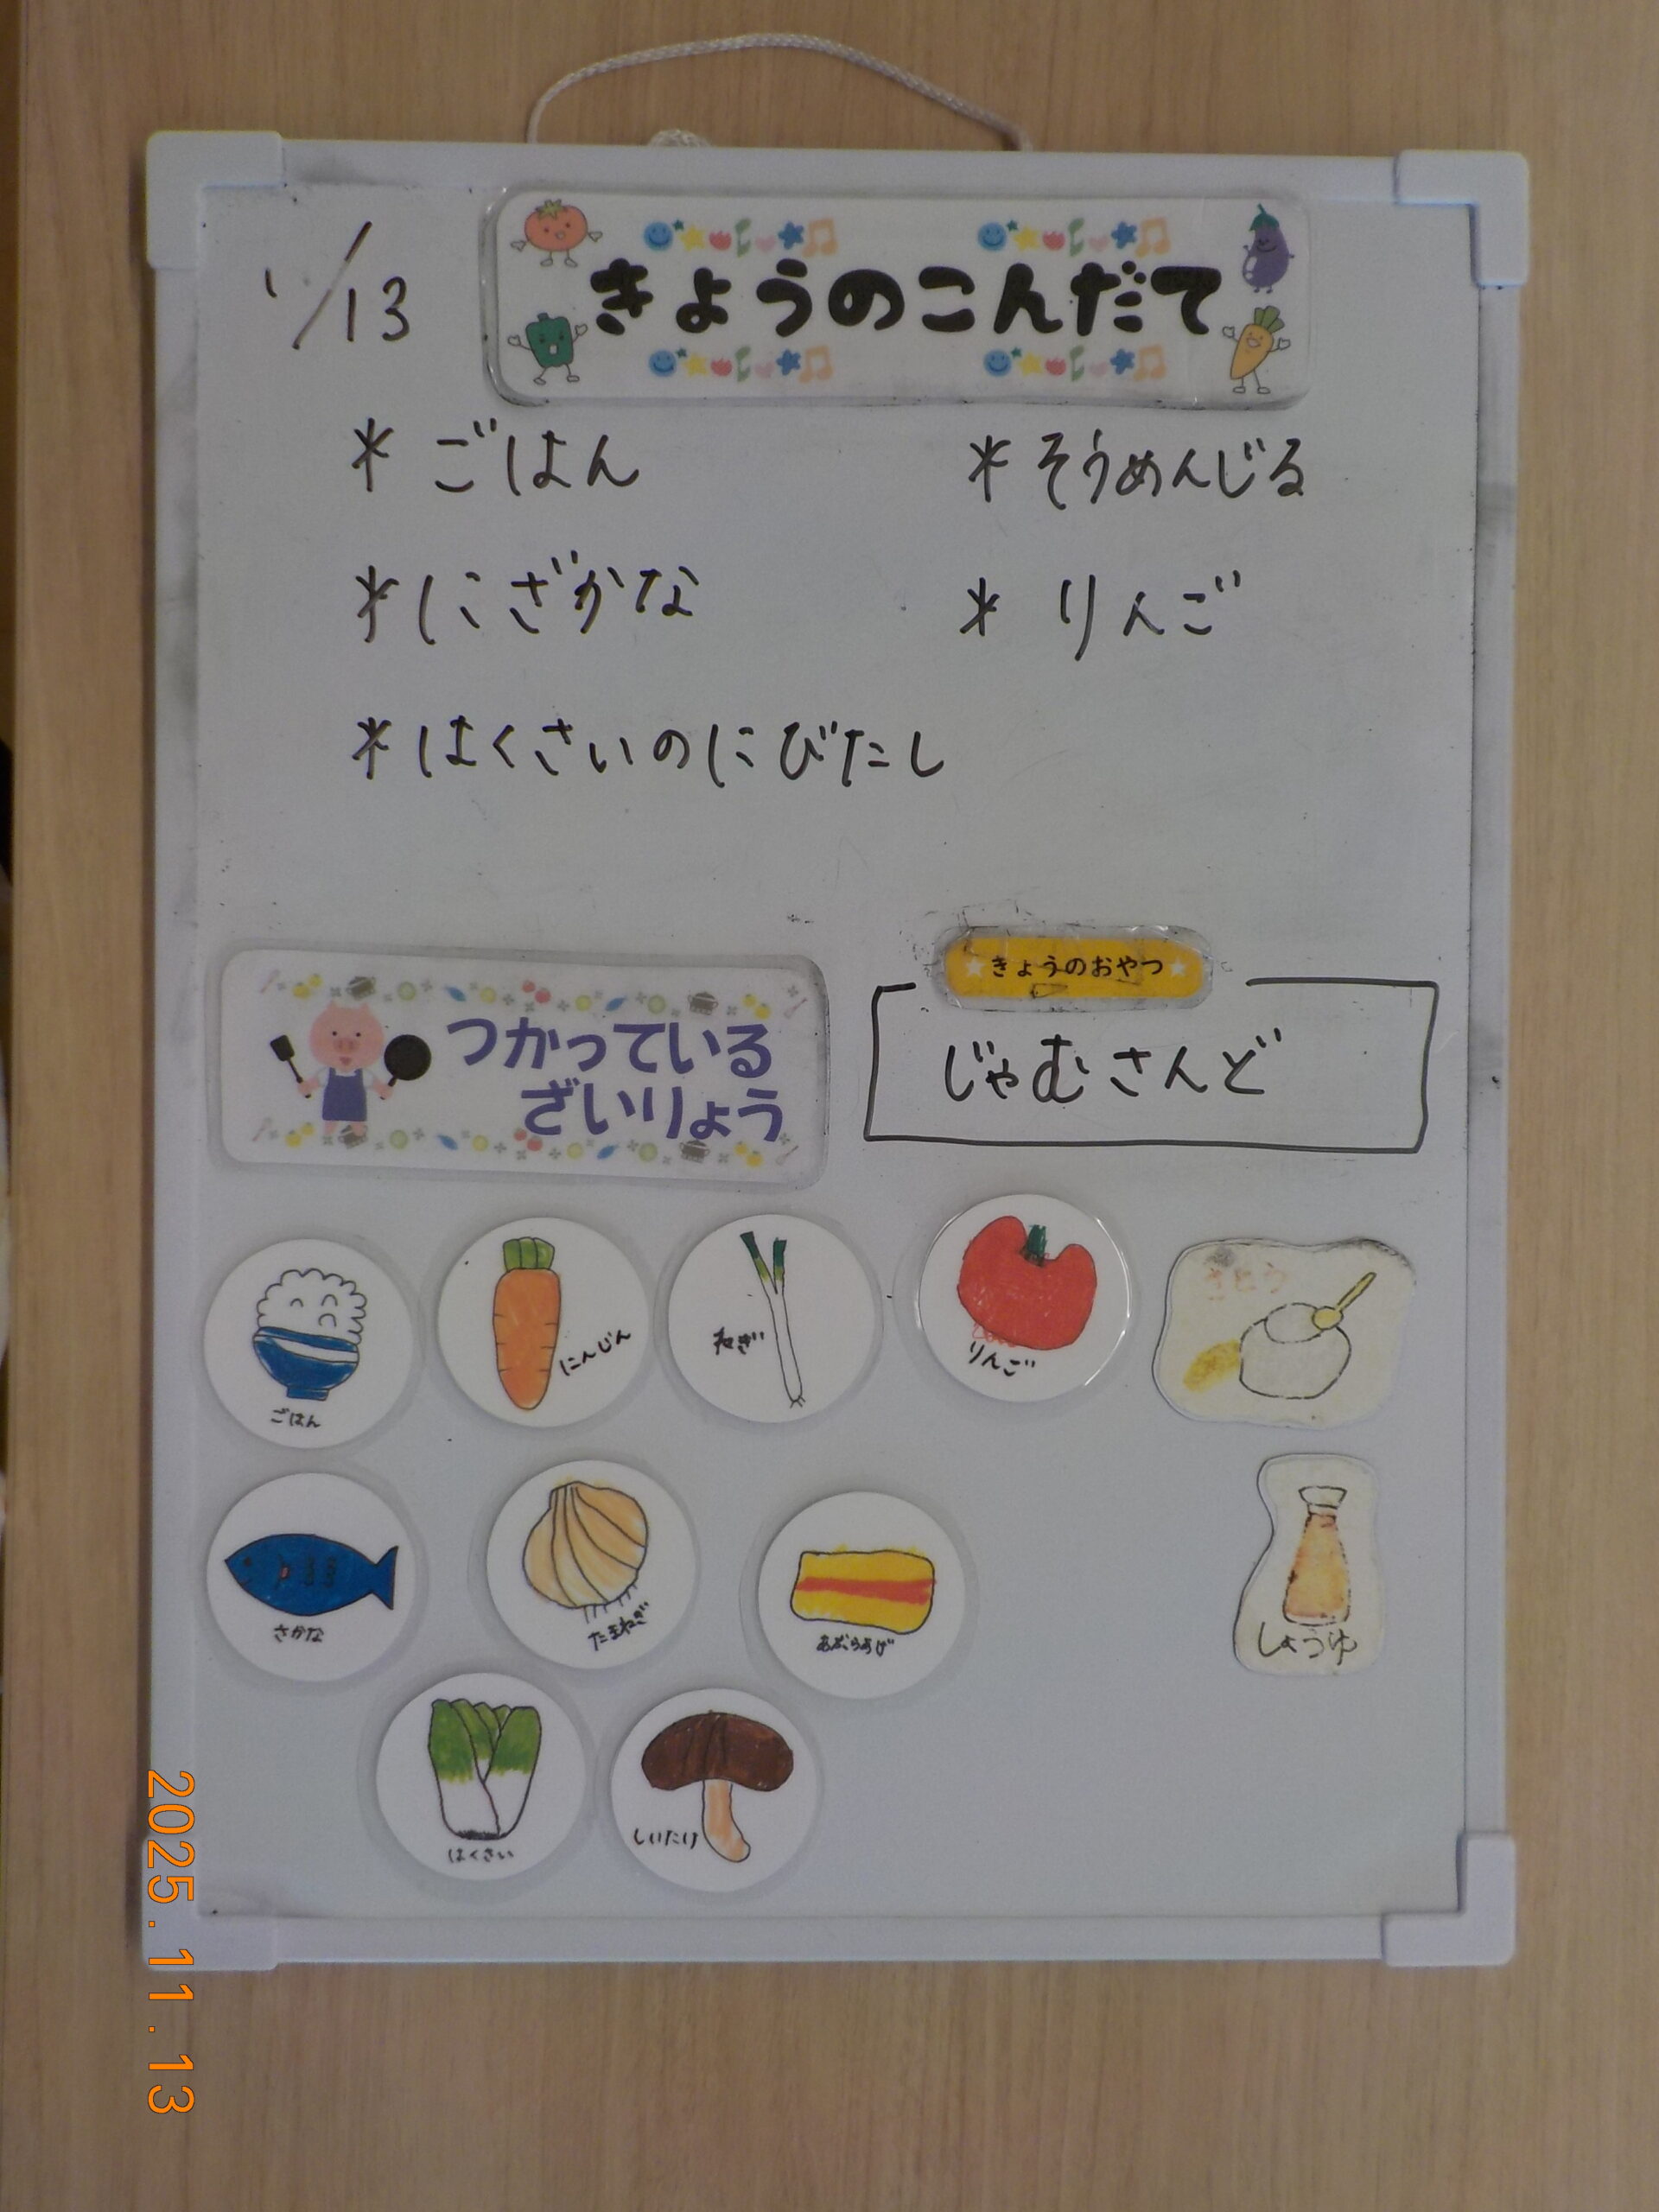 1/13
きょうのこんだて
* ごはん
* そうめんじる
* にざかな
* りんご
* はくさいのにびたし
きょうのおやつ
じゃむさんど
つかっている
ざいりょう
ごはん
にんじん
ねぎ
りんご
さとう
さかな
たまねぎ
あぶらあげ
しょうゆ
はくさい
しいたけ
2025.11.13